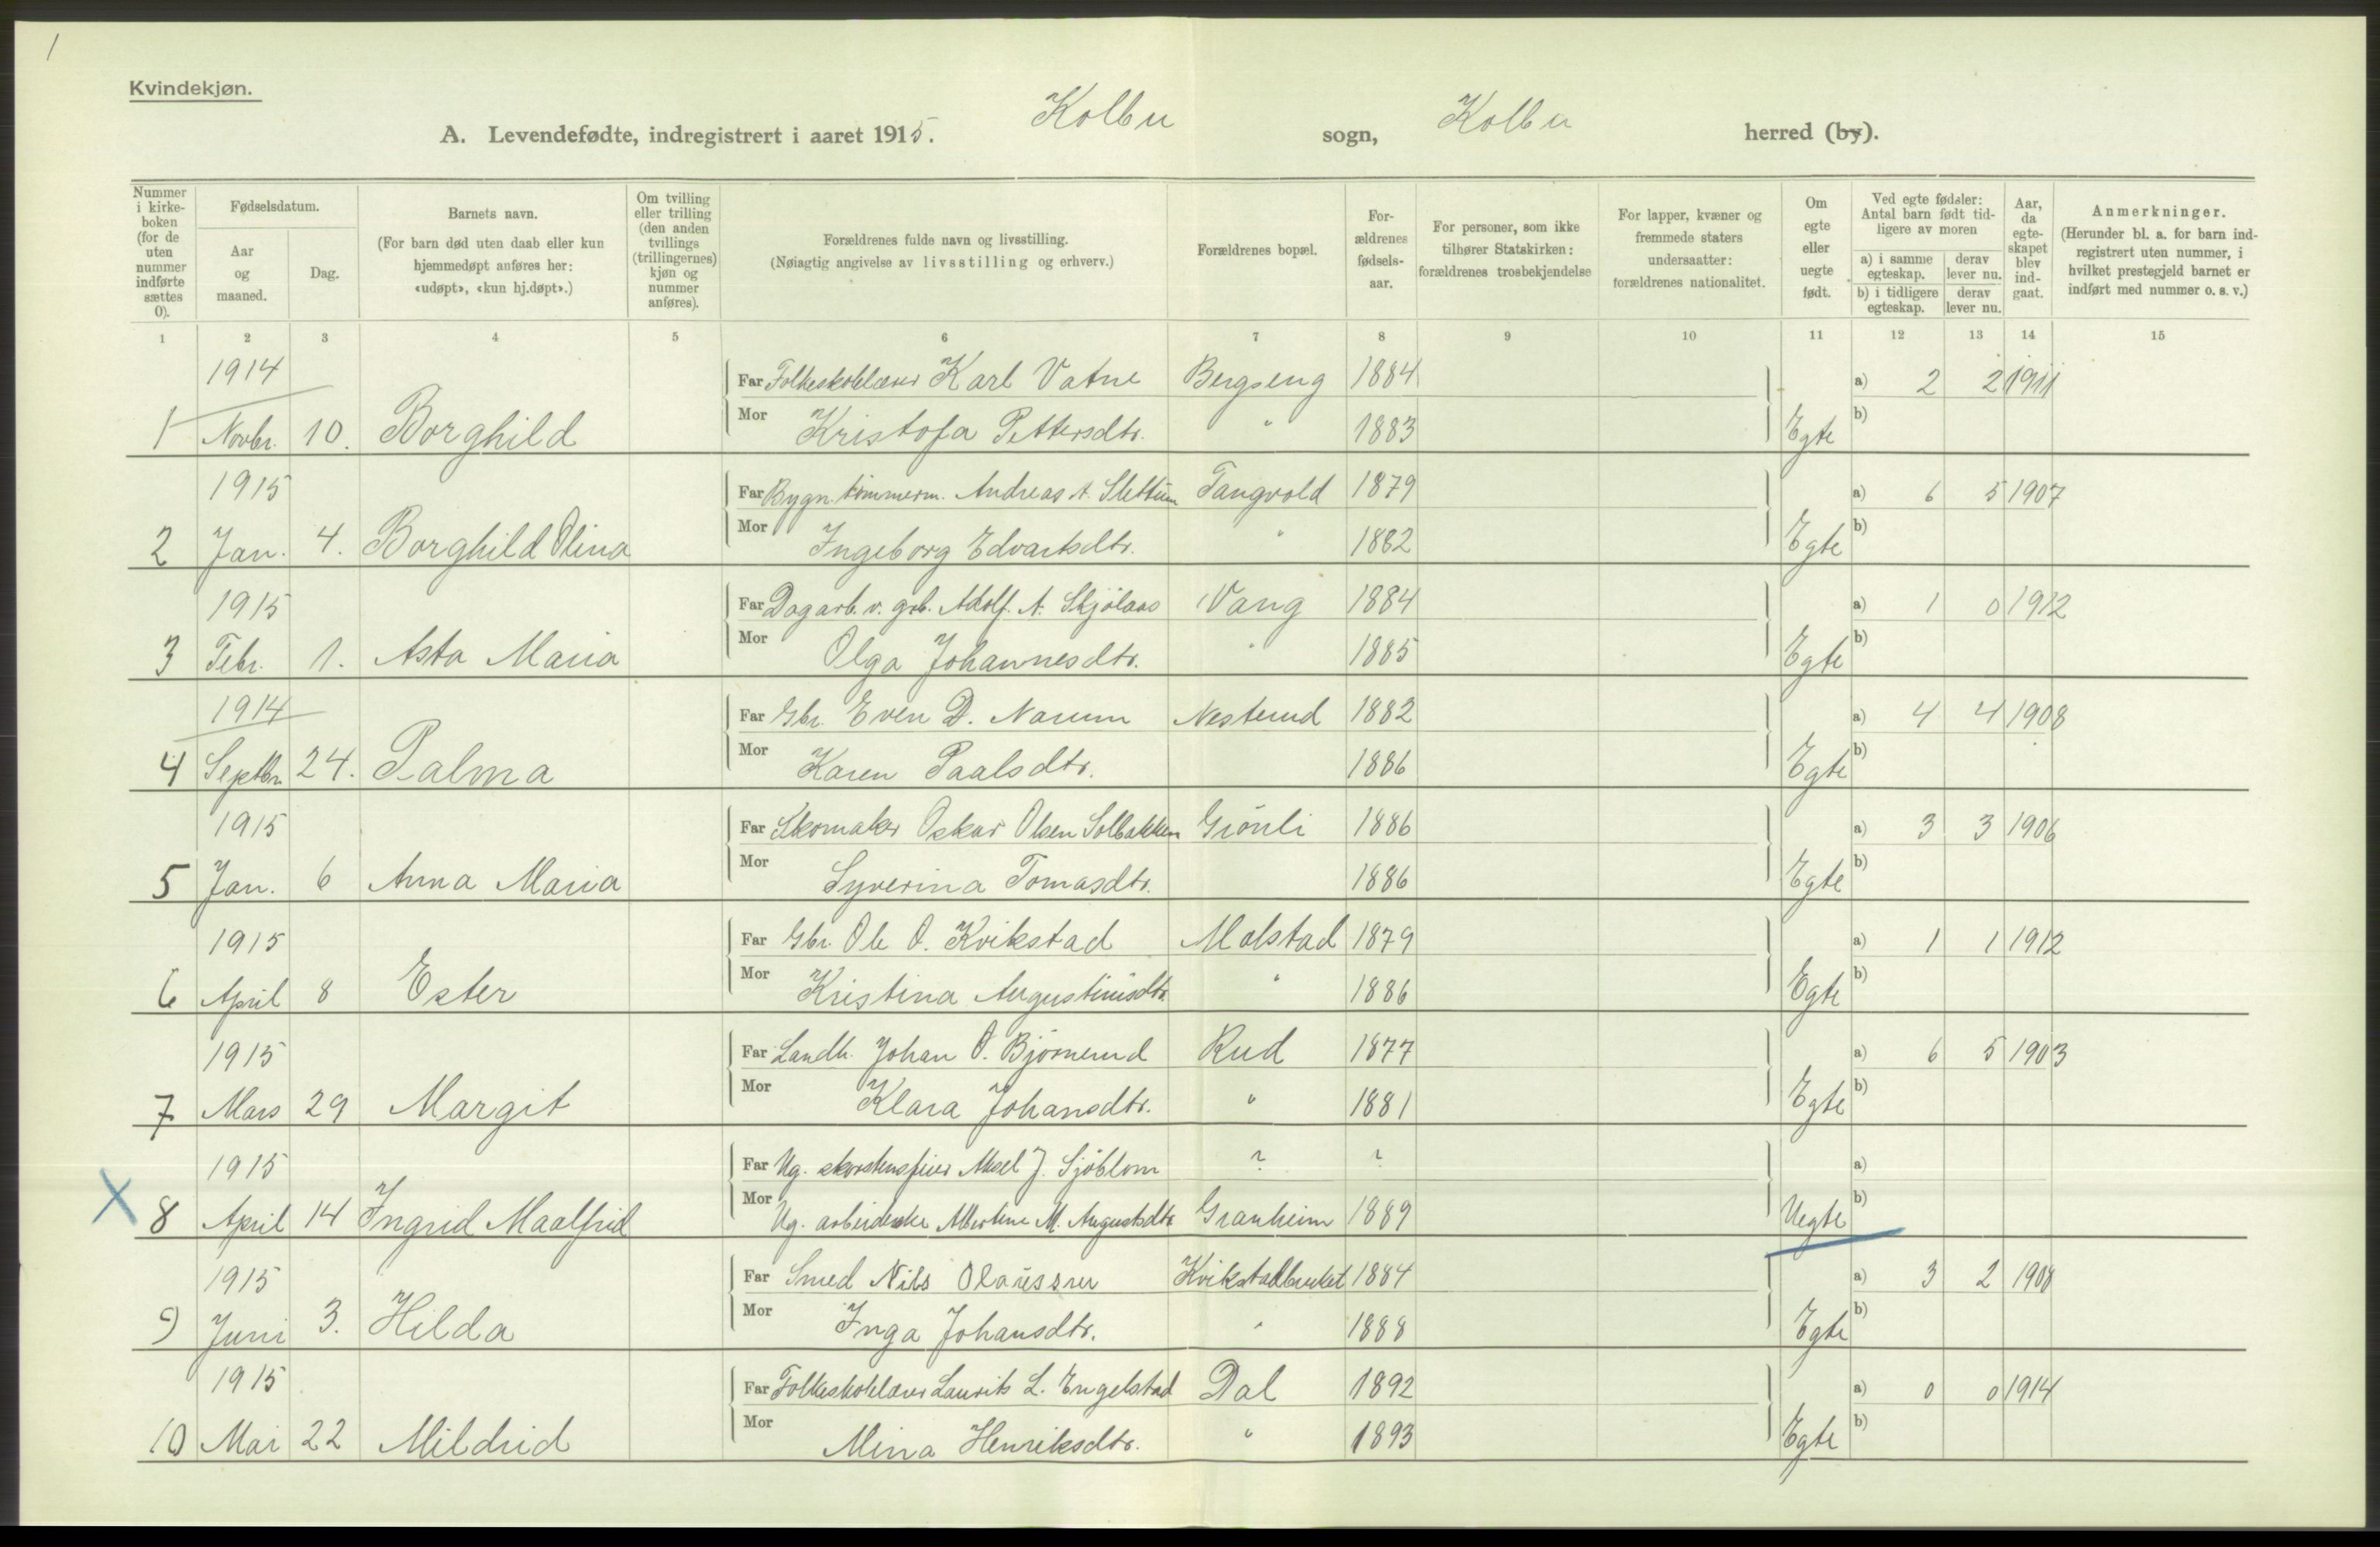 1
Kvindekjøn.
A. Levendefødte, indregistrert i aaret 1915. Kolbu sogn, Kolbu herred (by).
Nummer i kirkeboken (for de uten nummer indførte sættes 0).
Fødselsdatum.
Aar og maaned.
Dag.
Barnets navn.
(For barn død uten daab eller kun hjemmedøpt anføres her: «udøpt», «kun hj.døpt».)
Om tvilling eller trilling (den anden tvillings (trillingernes) kjøn og nummer anføres).
Forældrenes fulde navn og livsstilling.
(Nøiagtig angivelse av livsstilling og erhverv.)
Forældrenes bopæl.
Forældrenes fødselsaar.
For personer, som ikke tilhører Statskirken: forældrenes trosbekjendelse
For lapper, kvæner og fremmede staters undersaatter: forældrenes nationalitet.
Om egte eller uegte født.
Ved egte fødsler: Antal barn født tidligere av moren
a) i samme egteskap. derav lever nu.
b) i tidligere egteskap. derav lever nu.
Aar, da egteskapet blev indgaat.
Anmerkninger.
(Herunder bl. a. for barn indregistrert uten nummer, i hvilket prestegjeld barnet er indført med nummer o. s. v.)
1 2 3 4 5 6 7 8 9 10 11 12 13 14 15
1914 Far Folkeskolelærer Karl Vatne Bergseng 1884 a) 2 2 1911
1 Novbr. 10. Borghild Mor Kristofa Pettersdtr. " 1883 Egte b)
1915 Far Bygn. tømmerm. Andreas A. Slettum Tangvold 1879 a) 6 5 1907
2 Jan. 4. Borghild Olina Mor Ingeborg Edvartsdtr. " 1882 Egte b)
1915 Far Dagarb. v. grb. Adolf A. Skjölaas Vang 1884 a) 1 0 1912
3 Febr. 1. Asta Maria Mor Olga Johannesdtr. " 1885 Egte b)
1914 Far Gbr. Even D. Narum Nesterud 1882 a) 4 4 1908
4 Septbr. 24. Palma Mor Karen Paalsdtr. 1886 Egte b)
1915 Far Skomaker Oskar Olsen Solbakken Grönli 1886 a) 3 3 1906
5 Jan. 6 Anna Maria Mor Syverina Tomasdtr. 1886 Egte b)
1915 Far Gbr. Ole O. Kvikstad Molstad 1879 a) 1 1 1912
6 April 8 Ester Mor Kristina Augustinusdtr. " 1886 Egte b)
1915 Far Landh. Johan O. Björnerud Rud 1877 a) 6 5 1903
7 Mars 29 Margit Mor Klara Johansdtr. " 1881 Egte b)
1915 Far Ug. skorstensfeier Aksel J. Sjöblom ? ? a)
X 8 April 14 Ingrid Maalfrid Mor Ug. arbeiderske Albertine M. Augustsdtr. Granheim 1889 Uegte b)
1915 Far Smed Nils Olaussen Kvikstadbruket 1884 a) 3 2 1908
9 Juni 3. Hilda Mor Inga Johansdtr. " 1888 Egte b)
1915 Far Folkeskolelærer Laurits L. Engelstad Dal 1892 a) 0 0 1914
10 Mai 22 Mildrid Mor Mina Henriksdtr. " 1893 Egte b)